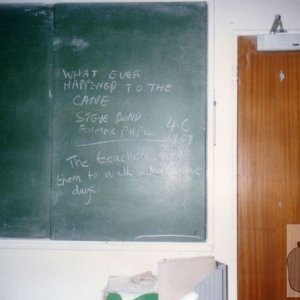 WHAT EVER
HAPPENED TO THE
CANE
STEVE BOND
FORMER PUPIL 4C
The teachers
them to walk the
days.